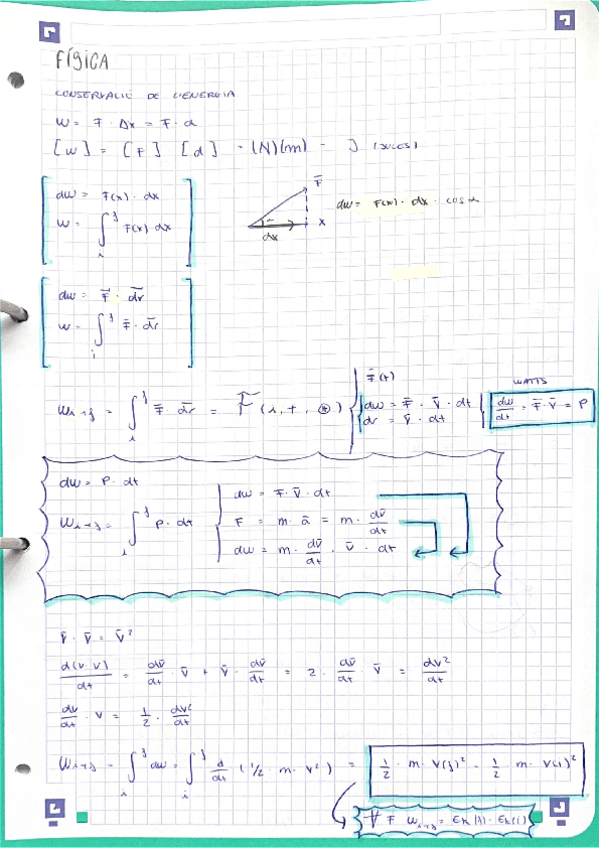 FÍSICA
CONSERVACIÓ DE L'ENERGIA
W = F · Δx = F · d
[W] = [F] [d] = (N)(m) = J (JULES)
dW = F(x) · dx
W = ∫ᵢʲ F(x) dx
F⃗
dx x
dW = F(x) · dx · cos α
dW = F̄ · d̄r
W = ∫ᵢʲ F̄ · d̄r
Wᵢ→ⱼ = ∫ᵢʲ F̄ · d̄r = F (i, t, ⊛)
F̄(t)
dW = F̄ · v̄ · dt
dr = v̄ · dt
WATTS
dW/dt = F̄ · v̄ = P
dW = P · dt
Wᵢ→ⱼ = ∫ᵢʲ P · dt
dW = F · v̄ · dt
F = m · ā = m · dv̄/dt
dW = m · dv̄/dt · v̄ · dt
v̄ · v̄ = v̄²
d(v v)/dt = dv̄/dt · v̄ + v̄ · dv̄/dt = 2 · dv̄/dt · v̄ = dv²/dt
dv/dt · v = 1/2 · dv²/dt
Wᵢ→ⱼ = ∫ᵢʲ dW = ∫ᵢʲ d/dt (1/2 · m · v²) = 1/2 · m · v(j)² - 1/2 · m · v(i)²
∀ F Wᵢ→ⱼ = Ek(j) - Ek(i)